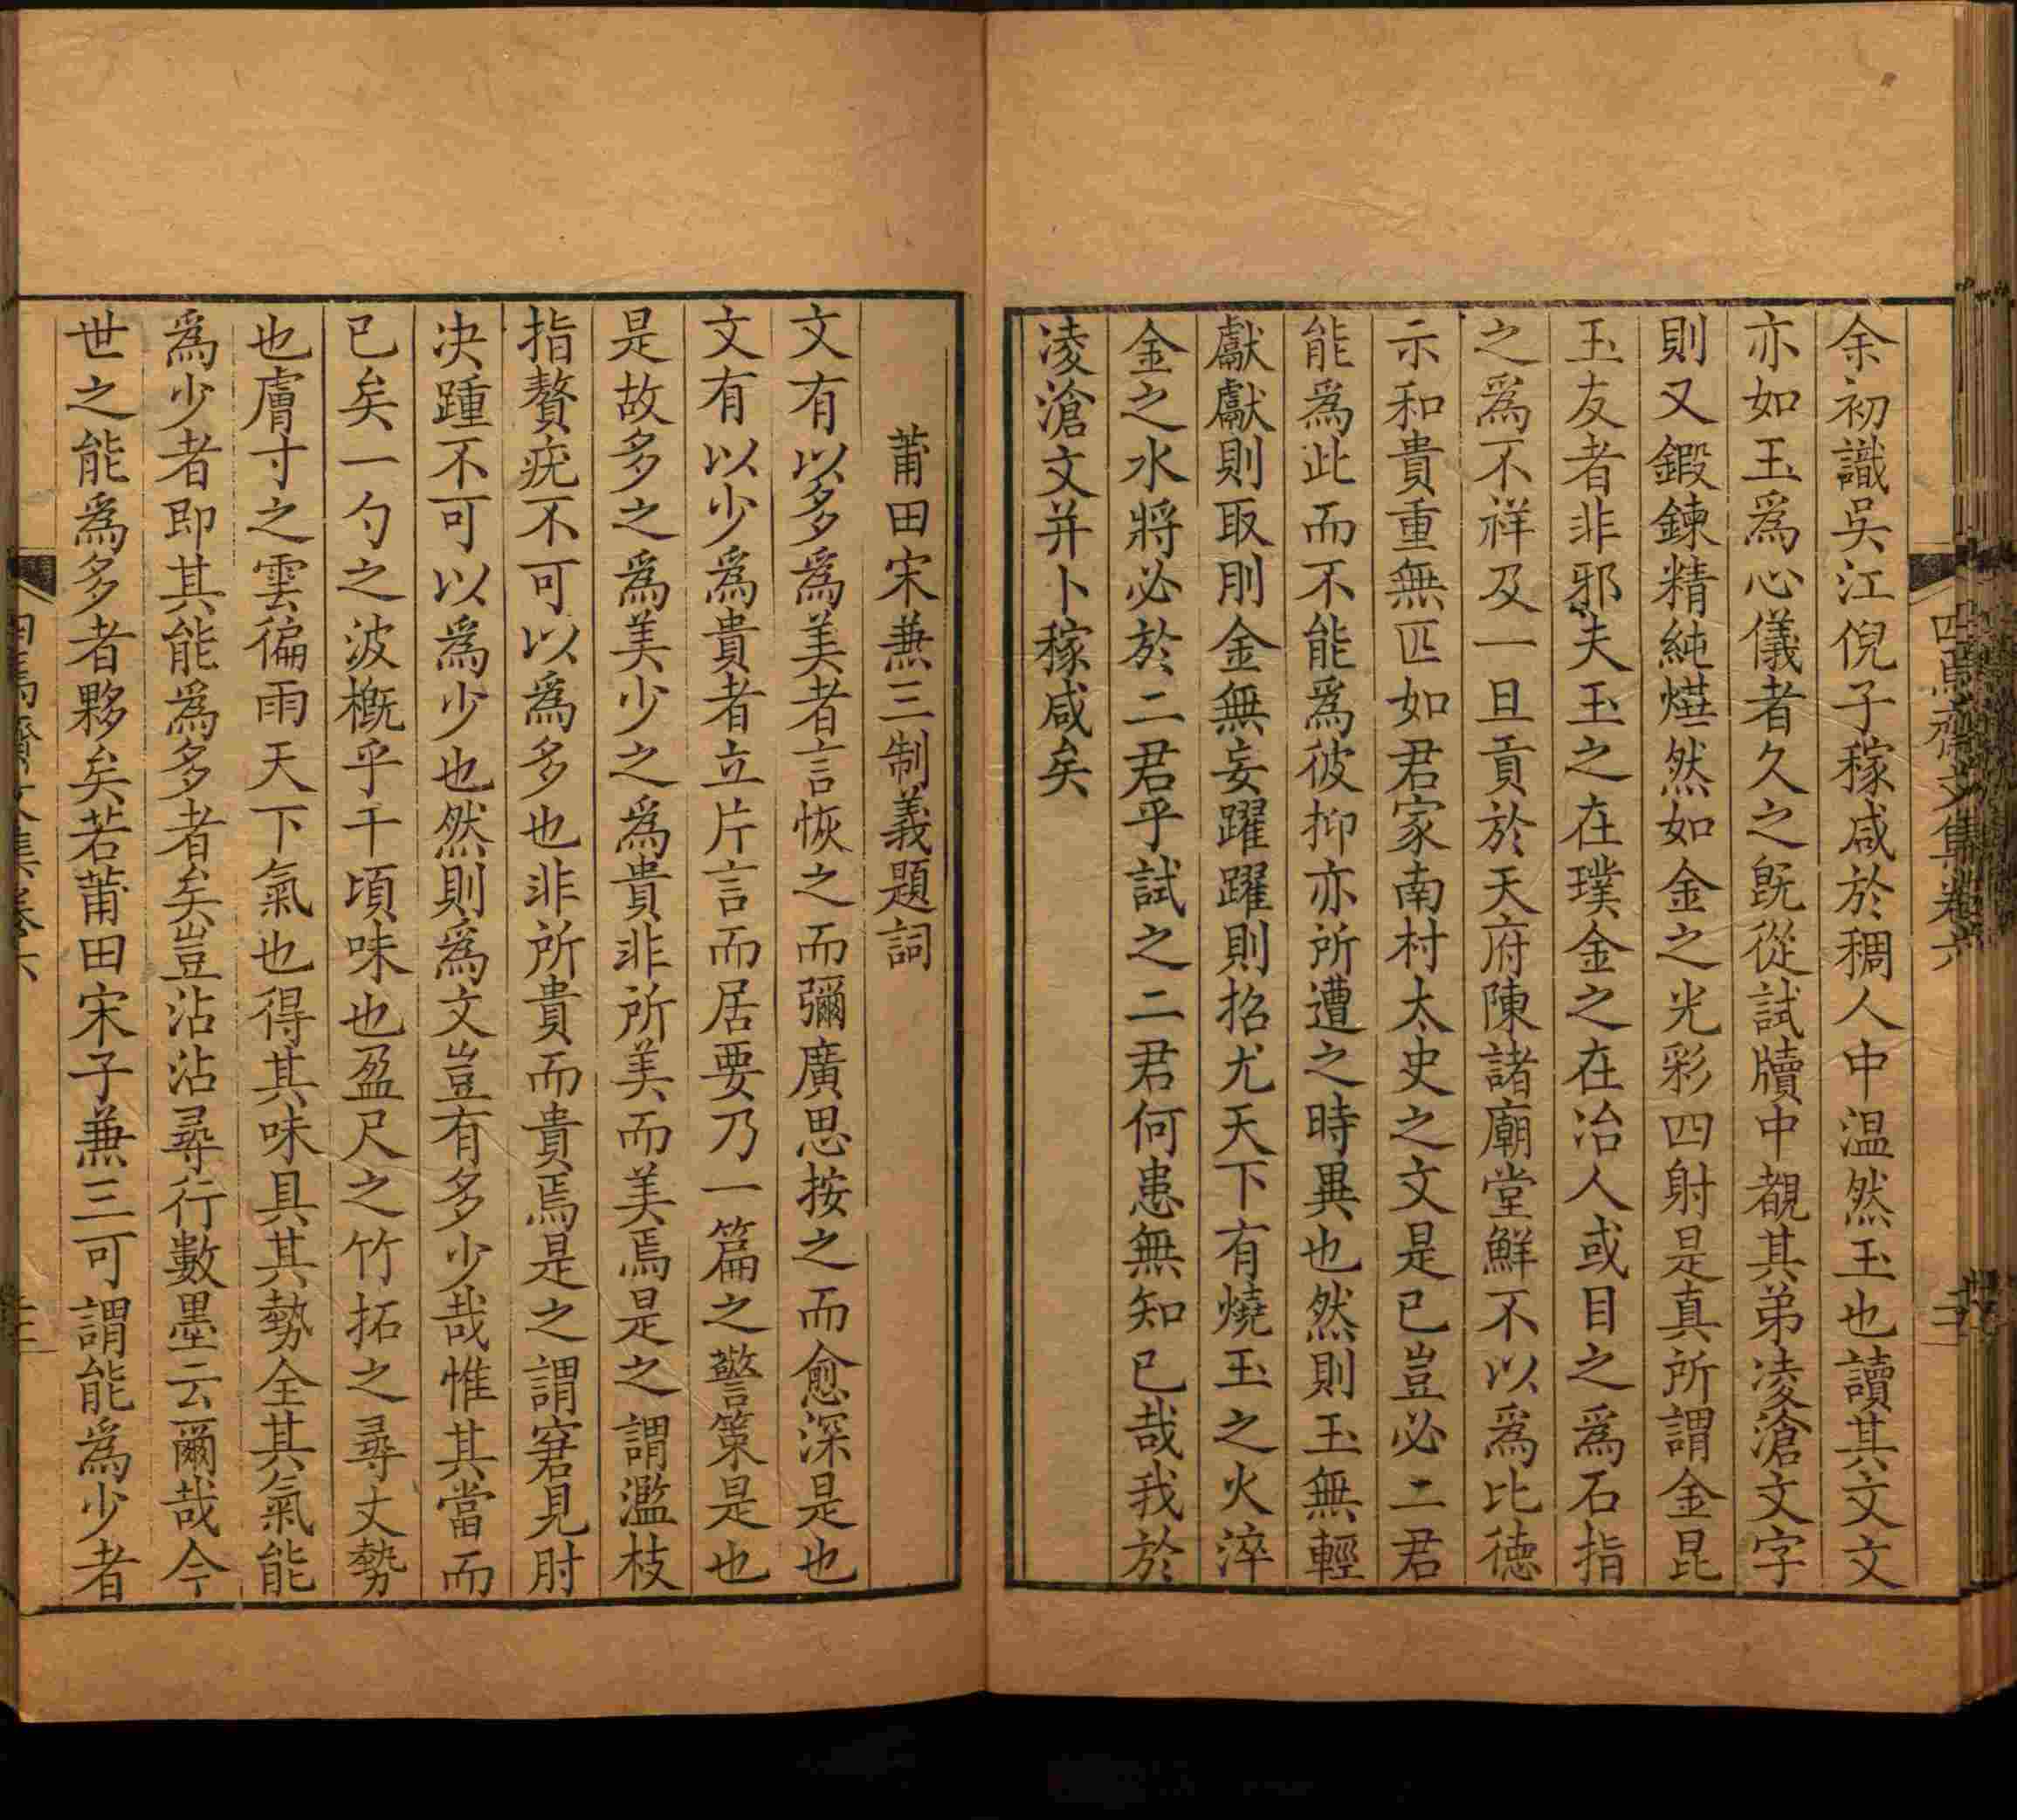 余初識吳江倪子稼咸於稠人中温然玉也讀其文文
亦如玉爲心儀者久之旣從試牘中覩其弟凌滄文字
則又鍛鍊精純燁然如金之光彩四射是真所謂金昆
玉友者非邪夫玉之在璞金之在冶人或目之爲石指
之爲不祥及一旦貢於天府陳諸廟堂鮮不以爲比德
示和貴重無匹如君家南村太史之文是已豈必二君
能爲此而不能爲彼抑亦所遭之時異也然則玉無輕
獻獻則取刖金無妄躍躍則招尤天下有燒玉之火淬
金之水將必於二君乎試之二君何患無知已哉我於
凌滄文并卜稼咸矣
莆田宋兼三制義題詞
文有以多爲美者言恢之而彌廣思按之而愈深是也
文有以少爲貴者立片言而居要乃一篇之警策是也
是故多之爲美少之爲貴非所美而美焉是之謂濫枝
指贅疣不可以爲多也非所貴而貴焉是之謂窘見肘
决踵不可以爲少也然則爲文豈有多少哉惟其當而
已矣一勺之波概乎千頃味也盈尺之竹拓之尋丈勢
也膚寸之雲徧雨天下氣也得其味具其勢全其氣能
爲少者即其能爲多者矣豈沾沾尋行數墨云爾哉今
世之能爲多者夥矣若莆田宋子兼三可謂能爲少者